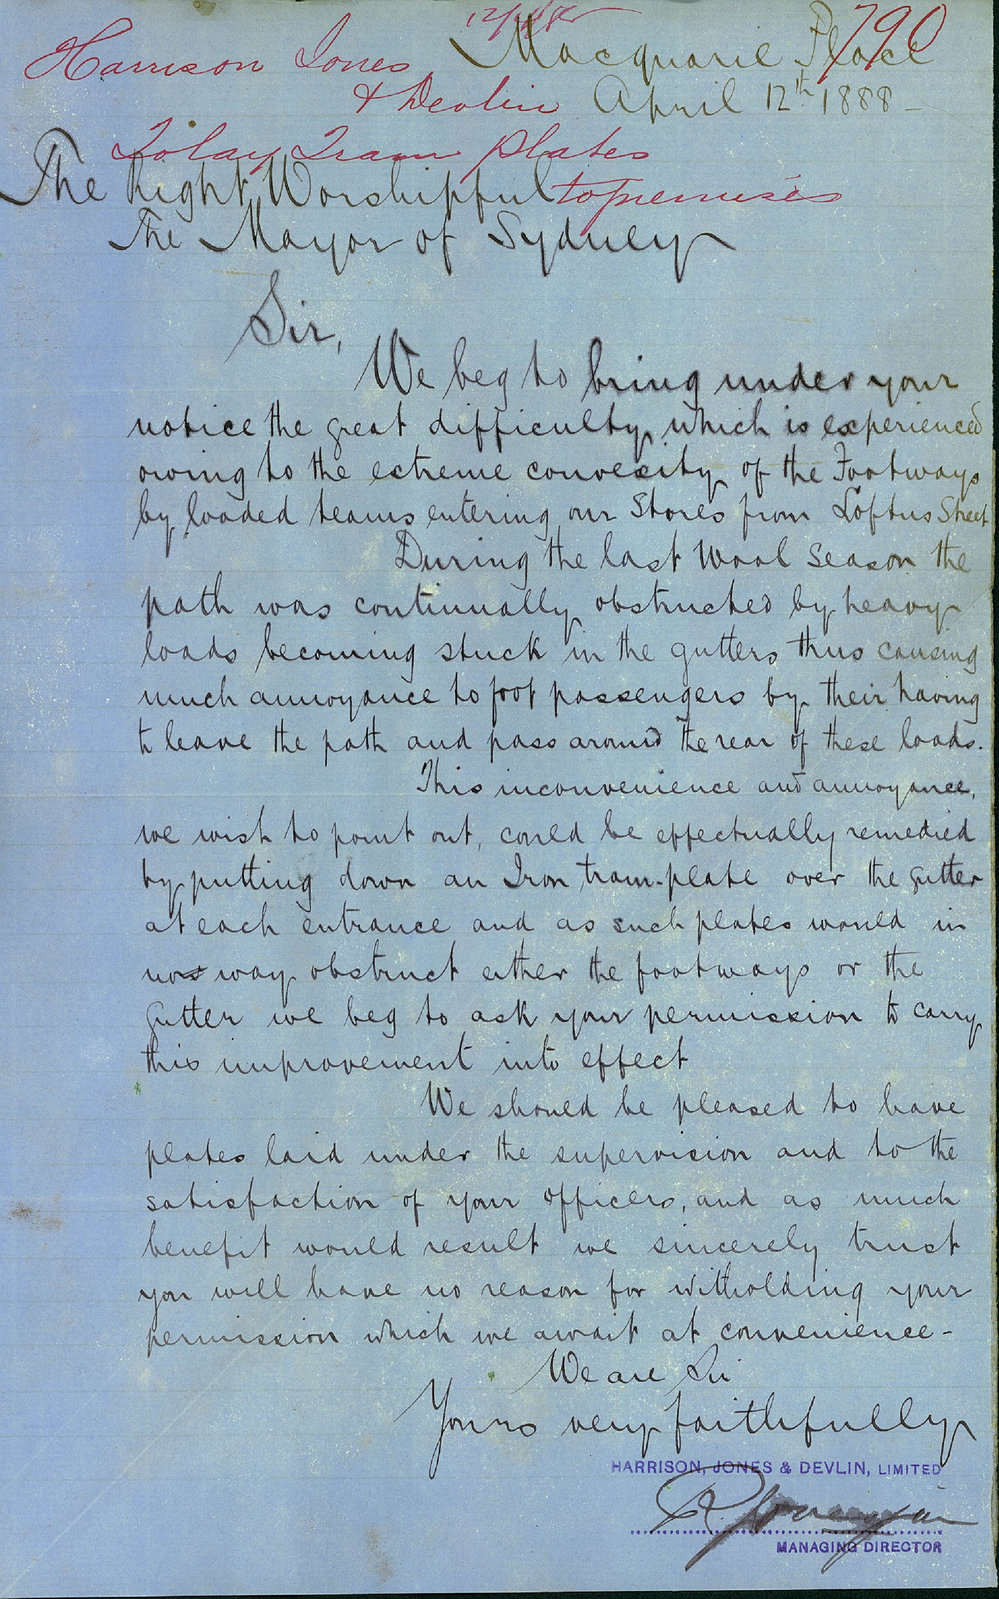 12/4/88
790
Harrison Jones
& Devlin
To lay Tram plates
to premises
Macquarie Place
April 12th 1888
The Right Worshipful
The Mayor of Sydney
Sir,
We beg to bring under your
notice the great difficulty which is experienced
owing to the extreme convexity of the Footways
by loaded teams entering our Stores from Loftus Street
During the last Wool Season the
path was continually obstructed by heavy
loads becoming stuck in the gutters thus causing
much annoyance to foot passengers by their having
to leave the path and pass around the rear of these loads.
This inconvenience and annoyance,
we wish to point out, could be effectually remedied
by putting down an Iron tram-plate over the gutter
at each entrance and as such plates would in
no way obstruct either the footways or the
gutter we beg to ask your permission to carry
this improvement into effect
We should be pleased to have
plates laid under the supervision and to the
satisfaction of your officers, and as much
benefit would result we sincerely trust
you will have no reason for witholding your
permission which we await at convenience -
We are Sir
Yours very faithfully
HARRISON, JONES & DEVLIN, LIMITED
MANAGING DIRECTOR